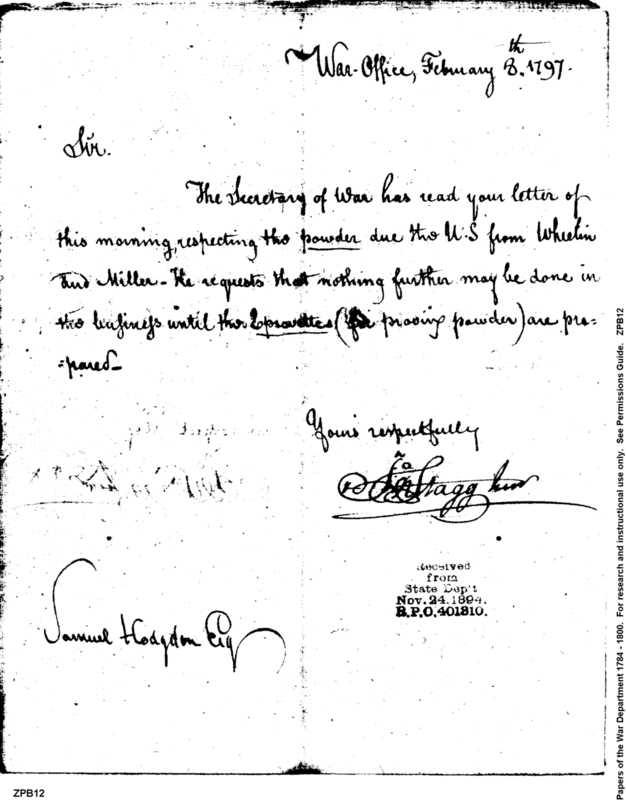 War-Office, February 8.th 1797.
Sir.
The Secretary of War has read your letter of
this morning, respecting the powder due the U.S from Wheelin
and Miller - He requests that nothing further may be done in
the business until the Eprovettes (for proving powder) are pre=
=pared_
Yours respectfully
Stagg Junr
Received
from
State Dep't
Nov. 24. 1894.
R.P.O. 401810.
Samuel Hodgdon Esq
ZPB12
Papers of the War Department 1784 - 1800. For research and instructional use only. See Permissions Guide. ZPB12